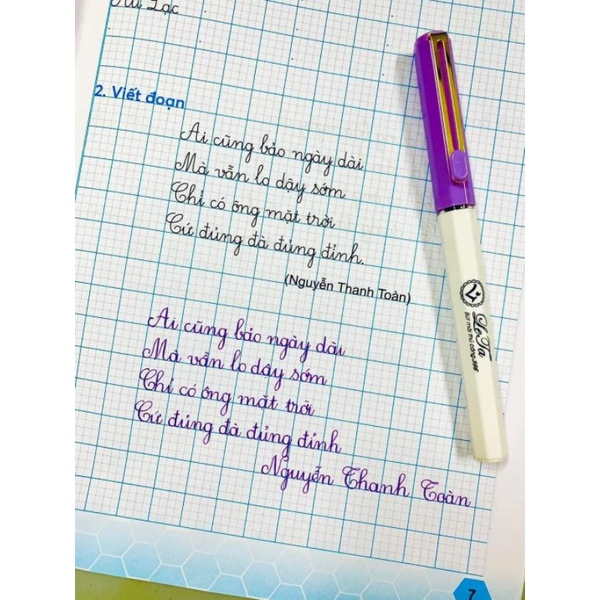 2. Viết đoạn
Ai cũng bảo ngày dài
Mà vẫn lo dậy sớm
Chỉ có ông mặt trời
Cứ đủng đà đủng đỉnh.
(Nguyễn Thanh Toàn)
Ai cũng bảo ngày dài
Mà vẫn lo dậy sớm
Chỉ có ông mặt trời
Cứ đủng đà đủng đỉnh
Nguyễn Thanh Toàn
LeTa
7